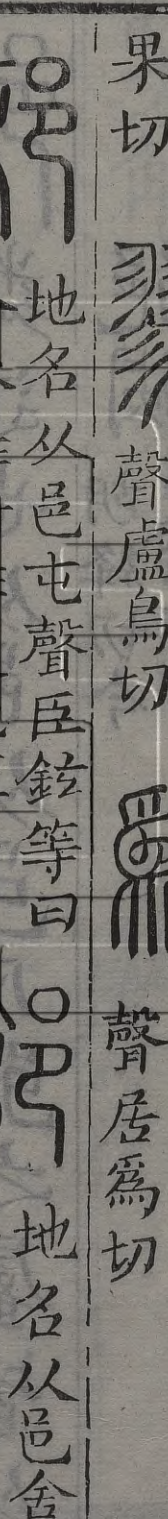 果切　聲盧鳥切　聲居爲切
地名从邑屯聲臣鉉等曰　地名从邑舍